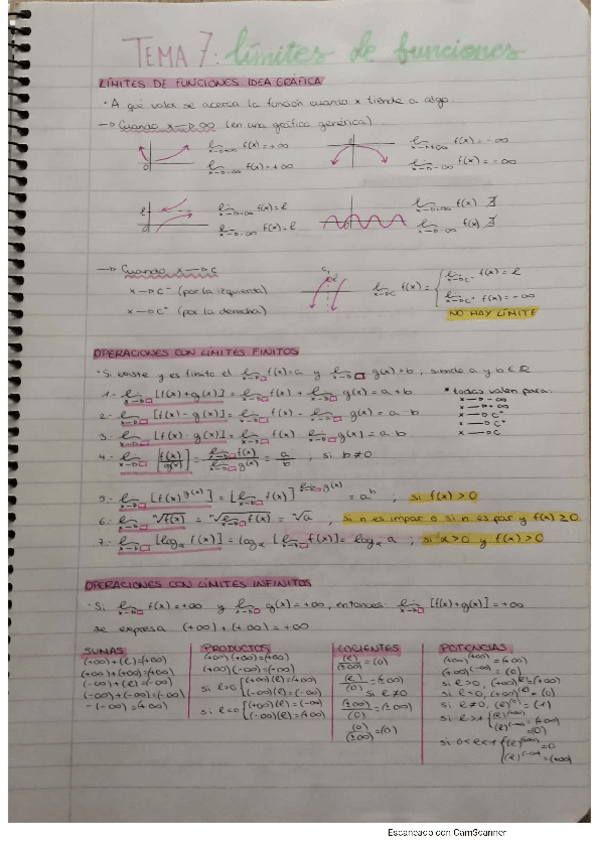 TEMA 7: límites de funciones
LÍMITES DE FUNCIONES IDEA GRÁFICA
· A qué valor se acerca la función cuando x tiende a algo.
→ Cuando x→∞ (en una gráfica genérica)
lim x→+∞ f(x)=+∞
lim x→-∞ f(x)=+∞
lim x→+∞ f(x)=-∞
lim x→-∞ f(x)=-∞
lim x→+∞ f(x)=l
lim x→-∞ f(x)=l
lim x→+∞ f(x) ∄
lim x→-∞ f(x) ∄
→ Cuando x→c
x→c⁻ (por la izquierda)
x→c⁺ (por la derecha)
lim x→c f(x)= { lim x→c⁻ f(x)=l
lim x→c⁺ f(x)=-∞
NO HAY LÍMITE
OPERACIONES CON LÍMITES FINITOS
· Si existe y es finito el lim x→□ f(x)=a y lim x→□ g(x)=b, siendo a y b ∈ ℝ
1- lim x→□ [f(x)+g(x)]= lim x→□ f(x) + lim x→□ g(x)=a+b
2- lim x→□ [f(x)-g(x)]= lim x→□ f(x) - lim x→□ g(x)=a-b
3- lim x→□ [f(x)·g(x)]= lim x→□ f(x)·lim x→□ g(x)=a·b
4- lim x→□ [f(x)/g(x)]= lim x→□ f(x) / lim x→□ g(x) = a/b ; si b≠0
* todas valen para:
x→-∞
x→+∞
x→c⁻
x→c⁺
x→c
5- lim x→□ [f(x)^g(x)]=[lim x→□ f(x)]^lim x→□ g(x) = a^b ; si f(x)>0
6- lim x→□ ⁿ√f(x) = ⁿ√lim x→□ f(x) = ⁿ√a ; si n es impar o si n es par y f(x)≥0
7- lim x→□ [log_α f(x)]=log_α [lim x→□ f(x)]= log_α a ; si α>0 y f(x)>0
OPERACIONES CON LÍMITES INFINITOS
· Si lim x→□ f(x)=+∞ y lim x→□ g(x)=+∞, entonces lim x→□ [f(x)+g(x)]=+∞
se expresa (+∞)+(+∞)=+∞
SUMAS
(+∞)+(l)=(+∞)
(+∞)+(+∞)=(+∞)
(-∞)+(l)=(-∞)
(-∞)+(-∞)=(-∞)
-(-∞)=(+∞)
PRODUCTOS
(+∞)·(+∞)=(+∞)
(+∞)·(-∞)=(-∞)
si l>0 { (+∞)(l)=(+∞)
(-∞)·(l)=(-∞)
si l<0 { (+∞)(l)=(-∞)
(-∞)(l)=(+∞)
COCIENTES
(l)/(±∞)=(0)
(l)/(0)=(±∞)
si l≠0
(±∞)/(0)=(±∞)
(0)/(±∞)=(0)
POTENCIAS
(+∞)^(+∞)=(+∞)
(+∞)^(-∞)=(0)
si l>0, (+∞)^l=(+∞)
si l<0, (+∞)^l=(0)
si l≠0, (l)^(0)=(1)
si l>1 { (l)^(+∞)=(+∞)
(l)^(-∞)=(0)
si 0<l<1 { (l)^(+∞)=0
(l)^(-∞)=(+∞)
Escaneado con CamScanner